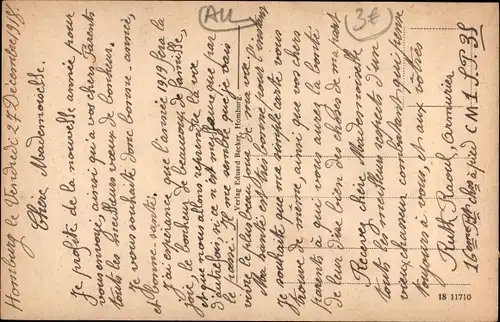 Hombourg le Vendredi 27 Décembre 1918.
Chère Mademoiselle.
Je profite de la nouvelle année pour
vous envoyer, ainsi qu'a vos chers Parents
touts les meilleurs vœux de bonheur.
Je vous souhaite donc bonne année,
et bonne santé.
J'ai espérance que l'année 1919 fera la
joie le bonheur de beaucoup de famille,
et que nous allons reprendre la vie
d'autrefois, ce n'est malheureux que trop
le passé. Il me semble que je vais
vivre le plus beau de ma vie.
Ma santé est très bonne pour l'instant
je souhaite que ma simple carte vous
trouve de même, ainsi que vos chers
parents à qui vous aurez la bonté
de leur dire bien des choses de ma part
Recevez chère Mademoiselle
touts les meilleurs respects d'un
vieux chasseur combattant qui pense
toujours à vous, et aux vôtres
Ruth Raoul, Armurier
16me Btn chas à pied C.M.1. S.P. 38
Verlag Eduard Becker, Homburg
18 11710
All
3€